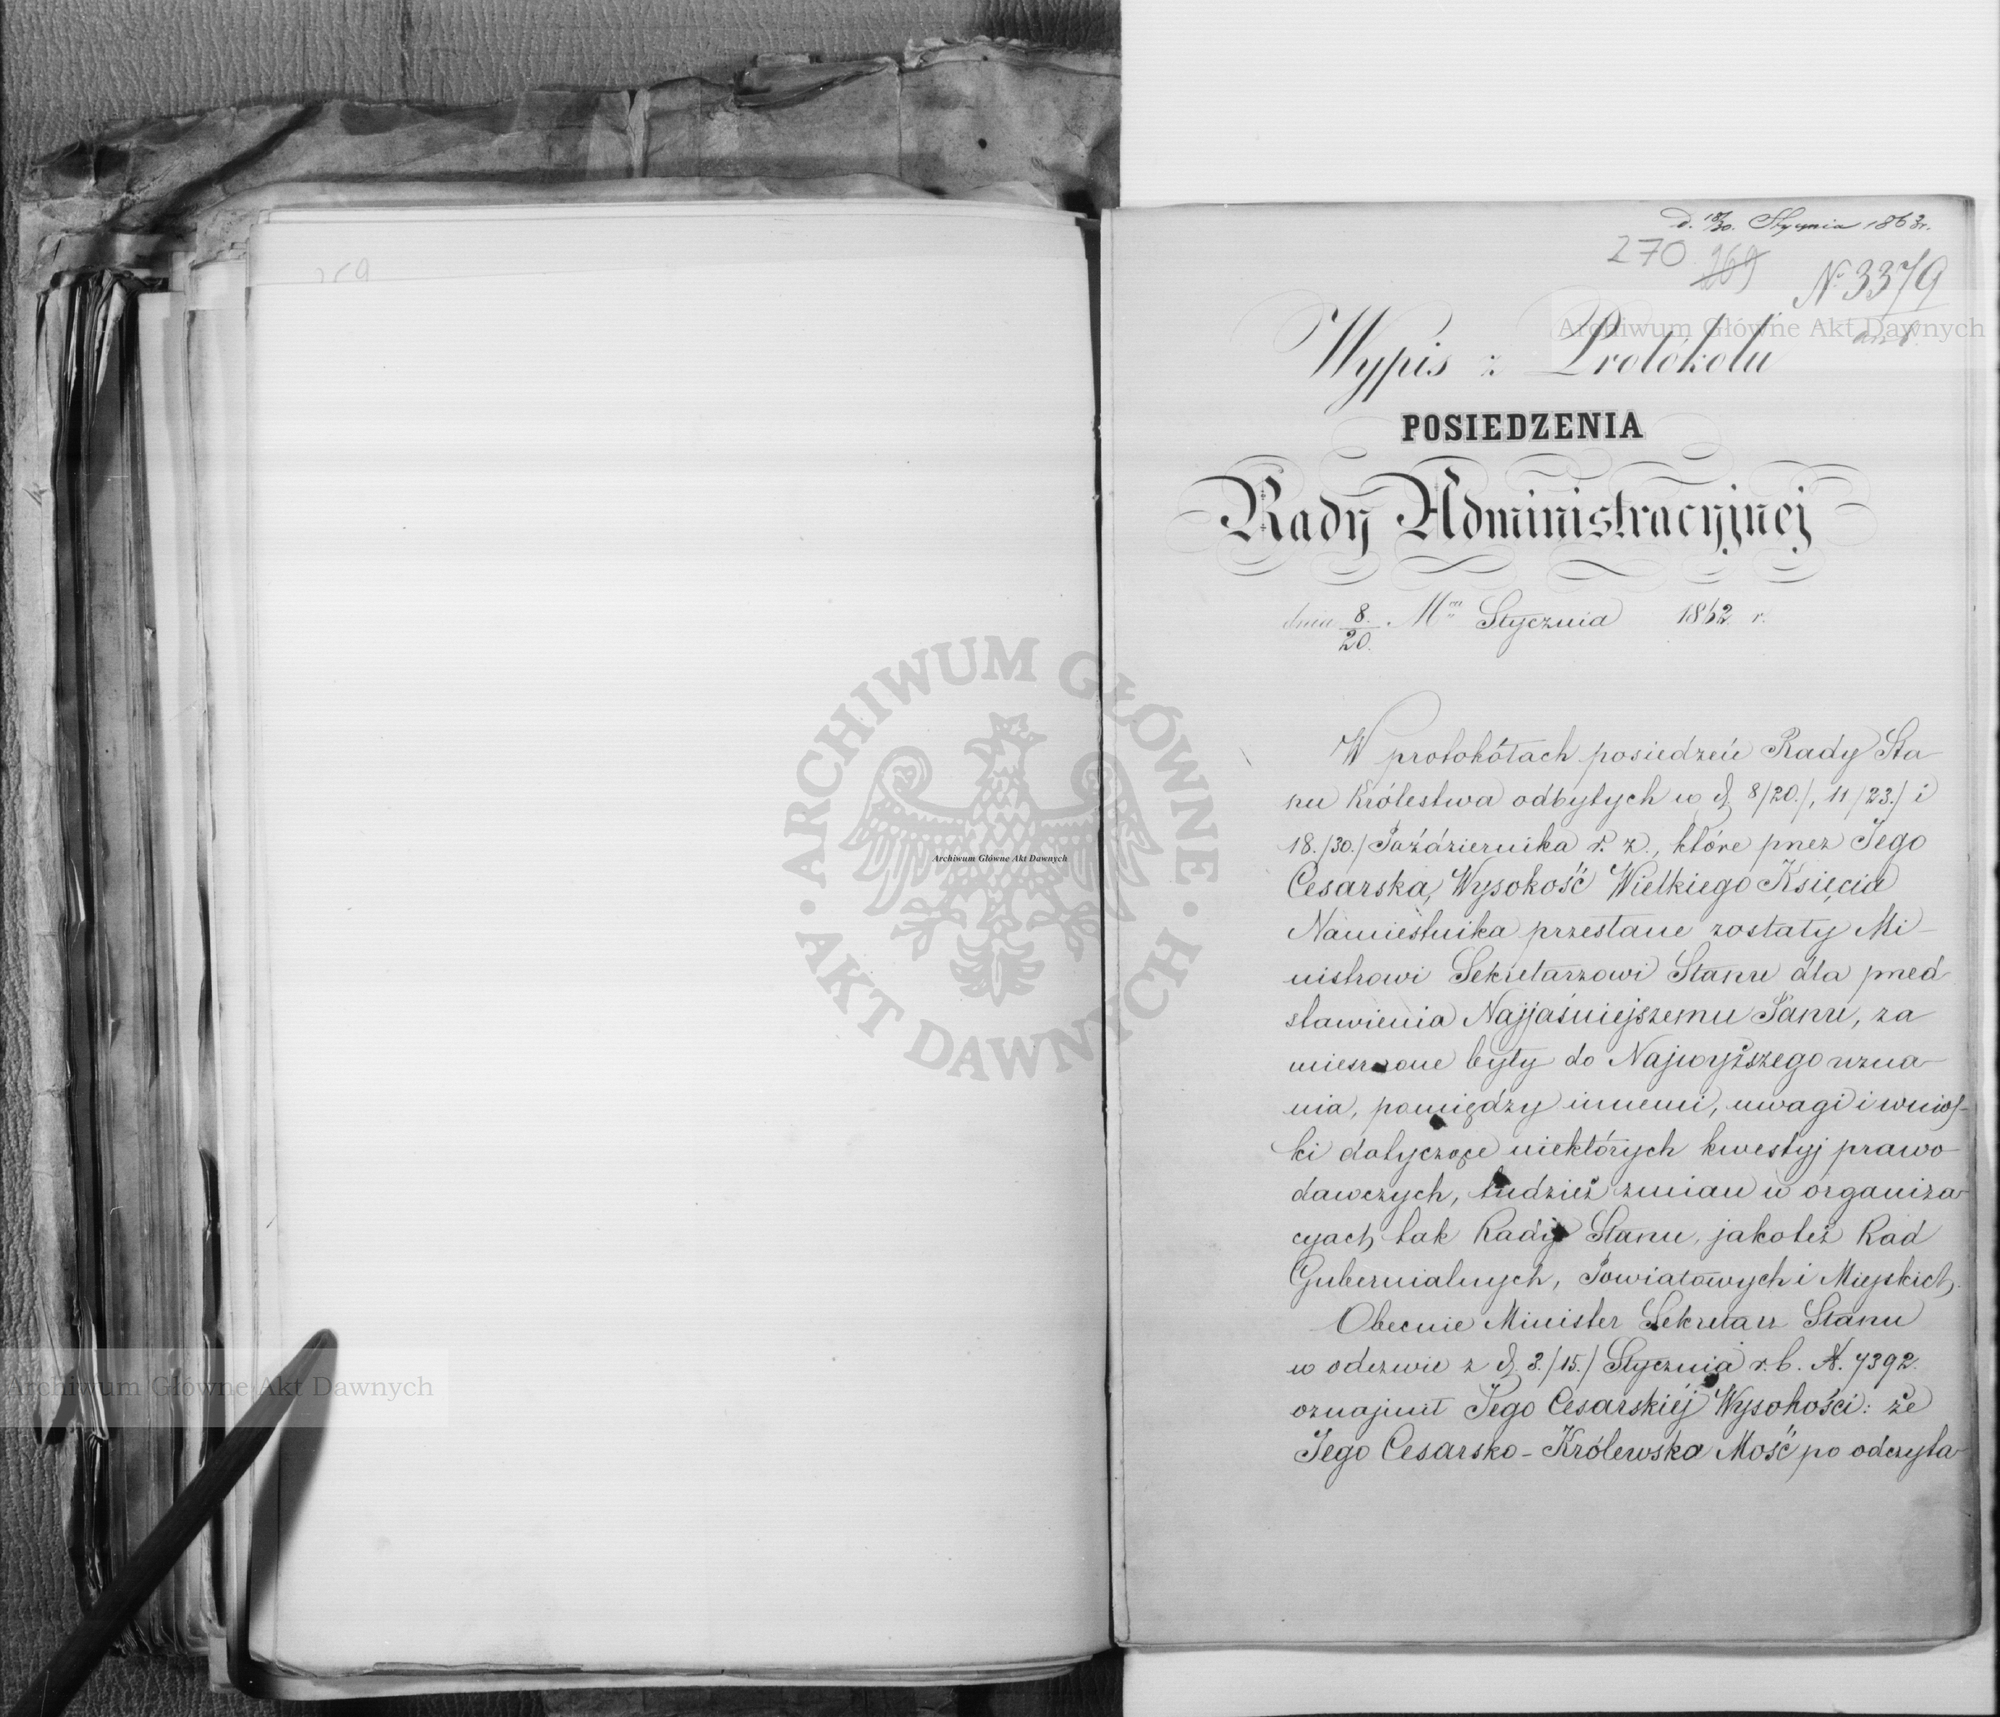 d. 18/30. Stycznia 1863 r.
270 269 № 3379
Wypis z Protókołu
POSIEDZENIA
Rady Administracyjnej
dnia 8./20. Mca Stycznia 1862 r.
W protokółach posiedzeń Rady Sta
nu Królestwa odbytych w d. 8/20./, 11/23./ i
18./30./ Października r. z., które przez Jego
Cesarską Wysokość Wielkiego Księcia
Namiestnika przesłane zostały Mi-
nistrowi Sekretarzowi Stanu dla przed
stawienia Najjaśniejszemu Panu, za
mieszczone były do Najwyższego uzna-
nia, pomiędzy innemi, uwagi i wnios-
ki dotyczące niektórych kwestyj prawo
dawczych, tudzież zmian w organiza-
cyach tak Rady Stanu, jakoteż Rad
Gubernialnych, Powiatowych i Miejskich.
Obecnie Minister Sekretarz Stanu
w odezwie z d. 3./15./ Stycznia r. b. №. 7392.
oznajmił Jego Cesarskiej Wysokości: że
Jego Cesarsko-Królewska Mość po odczyta-
Archiwum Główne Akt Dawnych
ARCHIWUM GŁÓWNE · AKT DAWNYCH ·
Archiwum Główne Akt Dawnych
Archiwum Główne Akt Dawnych